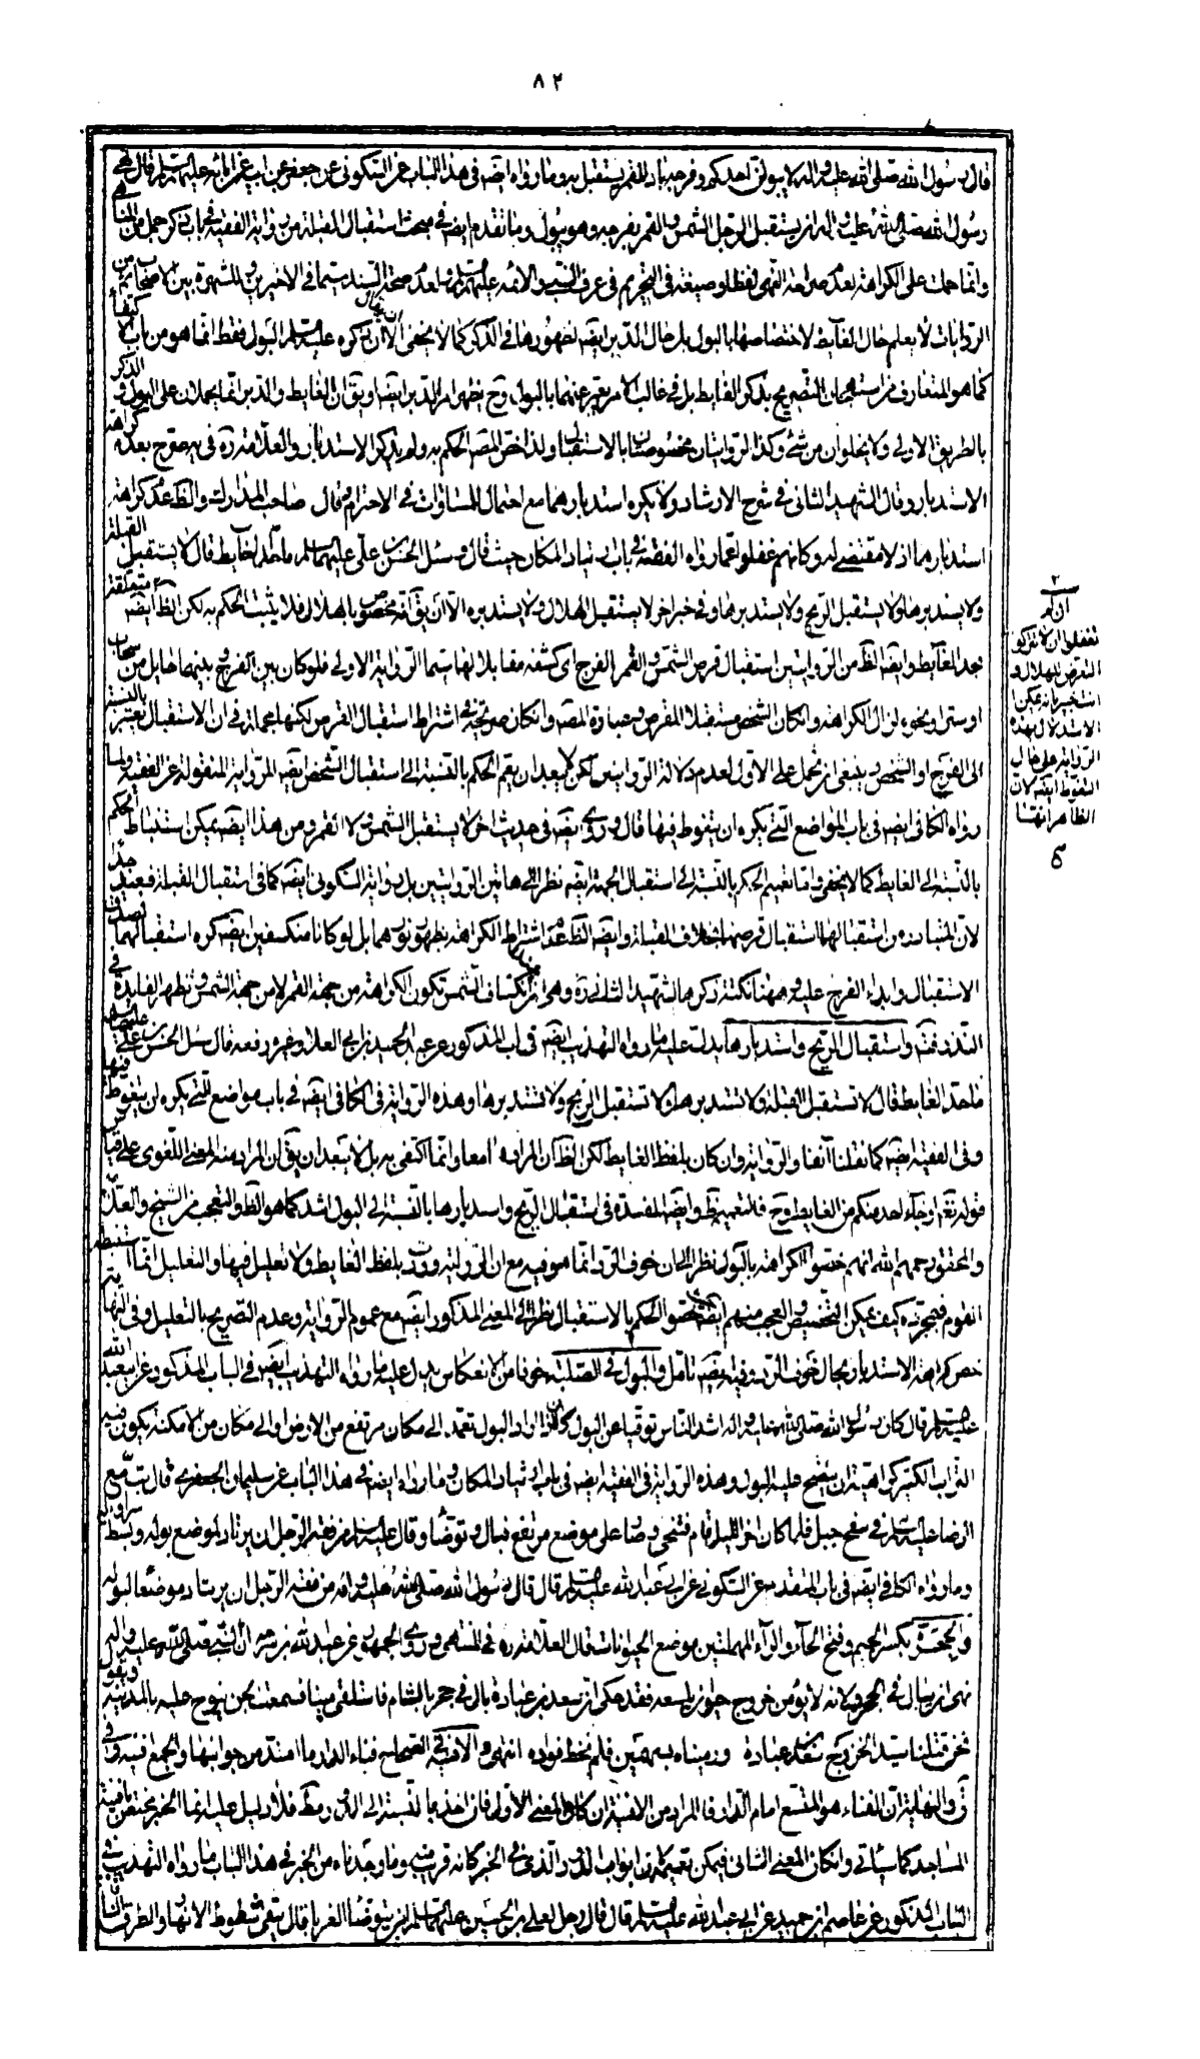 ٨٢
قال رسول الله صلى الله عليه واله لا يبولن احدكم وفرجه باد للقمر يستقبل به وما رواه ايضه فى هذا الباب عن السكونى عن جعفر عن ابيه عن ابائه عليهم السلم قال نهى
رسول الله صلى الله عليه واله ان يستقبل الرجل الشمس والقمر بفرجه وهو يبول وما تقدم ايضه فى مبحث استقبال القبلة من رواية الفقيه فى باب ذكر جمل من المناهى
وانما حملت على الكراهة لعدم صراحة النهى لفظا وصيغة فى التحريم فى عرف النبى والائمه عليهم السلم ولعدم صحة السند سيما فى الاخيرين وللشهرة بين الاصحاب ثم من
الروايات لا يعلم حال الغايط لاختصاصها بالبول بل حال الدبر ايضه لظهورها فى الذكر كما لا يخفى الا ان يقال ان ذكره عليه السلم البول فقط انما هو من باب الاكتفاء
كما هو المتعارف من استهجان التصريح بذكر الغايط بل فى غالب الامر يعبر عنهما بالبول وح يظهر امر الدبر ايضه او يق ان الغايط والدبر انما يحملان على البول والذكر
بالطريق الاولى ولا يخلوان من شئ وكذا الروايتان مخصوصتان بالاستقبال ولذا خص المصنف الحكم به ولم يذكر الاستدبار والعلامة ره فى يه صرح بعدم كراهة
الاستدبار وقال الشهيد الثانى فى شرح الارشاد ولا يكره استدبارهما مع احتمال للمساوات فى الاحترام وقال صاحب المدارك والظ عدم كراهة
استدبارهما اذ لا مقتضى له وكانهم غفلوا عما رواه الفقيه فى باب ارتياد المكان حيث قال وسئل الحسن بن على عليهما السلم ما حد الغايط قال لا يستقبل القبلة
ولا يستدبرها ولا يستقبل الريح ولا يستدبرها وفى خبر اخر لا يستقبل الهلال ولا يستدبره الا ان يق انه مخصوص بالهلال فلا يثبت الحكم به لكن الظ ايضه متعلقة
بحد الغايط وايضه الظ من الروايتين استقبال قرص الشمس والقمر بالفرج اى كشفه مقابلا لهما سيما الرواية الاولى فلو كان بين الفرج وبينهما حايل من سحاب
او ستر او نحوه لزال الكراهة وان كان الشخص مستقبلا للقرص وعبارة المصنف وان كان صريحة فى اشتراط استقبال القرص لكنها مجملة فى ان الاستقبال يعتبر بالنسبة
الى الفرج او الشخص وينبغى ان يحمل على الاول لعدم دلالة الروايتين لكن لا يبعد ان يعم الحكم بالنسبة الى استقبال الشخص ايضه للرواية المنقولة عن الفقيه ولما
رواه الكافى ايضه فى باب المواضع التى يكره ان يتغوط فيها قال وروى ايضه فى حديث اخر لا يستقبل الشمس ولا القمر ومن هذا ايضه يمكن استنباط الحكم
بالنسبة الى الغايط كما لا يخفى واما تعميم الحكم بالنسبة الى استقبال الجهة ايضه نظرا الى هاتين الروايتين بل رواية السكونى ايضه كما فى استقبال القبلة فبعيد جدا
لان المتبادر من استقبالهما استقبال قرصهما بخلاف القبلة وايضه الظ عدم اشتراط الكراهة بظهور نورهما بل لو كانا منكسفين ايضه كره استقبالهما لصدق
الاستقبال وابداء الفرج عليه وههنا نكتة ذكرها الشهيد الثانى ره وهى ان عند انكساف الشمس تكون الكراهة من جهة القمر لا من جهة الشمس وتظهر الفايدة فى
النذر فتمه واستقبال الريح واستدبارها يدل عليه ما رواه التهذيب ايضه فى الباب المذكور عن عبد الحميد بن ابى العلا وغيره رفعه قال سئل الحسن بن على عليهما السلم
ما حد الغايط قال لا تستقبل القبلة ولا تستدبرها ولا تستقبل الريح ولا تستدبرها وهذه الرواية فى الكافى ايضه فى باب مواضع التى يكره ان يتغوط فيها
وفى الفقيه ايضه كما نقلنا آنفا والرواية وان كان بلفظ الغايط لكن الظ ان المراد هما معا وانما اكتفى به بل لا يبعد ان يق ان المراد منه المعنى اللغوى على قياس
قوله تعم او جاء احد منكم من الغايط وح فالتعميم ظ وايضه المفسدة فى استقبال الريح واستدبارها بالنسبة الى البول اشد كما هو الظ والتعجب من الشيخ والعلامة
والمحقق رحمهم الله انهم خصوا الكراهة بالبول نظرا الى ان خوف الرد انما هو فيه مع ان الرواية وردت بلفظ الغايط ولا تعليل فيها والتعليل انما استنبطه
القوم فبمجرده كيف يمكن التخصيص والعجب منهم ايضه انهم خصوا الحكم بالاستقبال نظرا الى المعنى المذكور ايضه مع عموم الرواية وعدم التصريح بالتعليل وفى النهاية
خص كراهة الاستدبار بحال خوف الرد وفيه ايضه تامل والبول فى الصلبة خوفا من الانعكاس يدل عليه ما رواه التهذيب ايضه فى الباب المذكور عن ابى عبد الله
عليه السلم قال كان رسول الله صلى الله عليه واله اشد الناس توقيا عن البول كان اذا اراد البول تعمد الى مكان مرتفع من الارض او الى مكان من الامكنة يكون فيه
التراب الكثير كراهية ان ينضح عليه البول وهذه الرواية فى الفقيه ايضه فى باب ارتياد المكان وما رواه ايضه فى هذا الباب عن سليمان الجعفرى قال بت مع
الرضا عليه السلم فى سفح جبل فلما كان اخر الليل قام فتنحى وصار على موضع مرتفع فبال وتوضأ وقال عليه السلم من فقه الرجل ان يرتاد لموضع بوله وبسط سراويله
وما رواه الكافى ايضه فى باب المتقدم عن السكونى عن ابى عبد الله عليه السلم قال قال رسول الله صلى الله عليه واله من فقه الرجل ان يرتاد موضعا لبوله
والجحرة بكسر الجيم وفتح الحاء والراء المهملتين موضع الحيوانات قال العلامة ره فى المنتهى وروى الجمهور عن عبد الله بن سرجس ان النبى صلى الله عليه واله
نهى ان يبال فى الجحر ولانه لا يؤمن خروج حيوان يلسعه فقد حكى ان سعد بن عبادة بال فى جحر بالشام فاستلقى ميتا فسمعت الجن تنوح عليه بالمدينة وتقول
نحن قتلنا سيد الخزرج سعد بن عبادة ورميناه بسهمين فلم نخط فؤاده انتهى والافنية الصحاح فناء الدار ما امتد من جوانبها والجمع افنية وفى
ق والنهاية ان الفناء هو المتسع امام الدار فالمراد من الافنية ان كان المعنى الاول فان اخذ بالنسبة الى الدور مط فلا دليل عليه انما الخبر يختص بافنية
المساجد كما سيأتى وان كان المعنى الثانى فيمكن تعميمه فى ابواب الدور الذى فى الخبر كانه قريب منه وما وجدناه من الخبر فى هذا الباب ما رواه التهذيب فى
الباب المذكور عن عاصم بن حميد عن ابى عبد الله عليه السلم قال قال رجل لعلى بن الحسين عليهما السلم اين يتوضأ الغرباء قال يتقى شطوط الانهار والطرق النافذة
٢
ان لم
تغفلوا ان لا تتركوا
التعرض للهلال و
انت خبير بانه يمكن
الاستدلال بهذه
الرواية على حال
التغوط ايضه لان
الظاهر انها